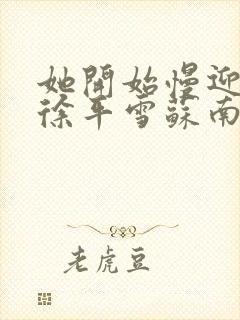 她開始慢迎
徐平雪蘇南
老虎豆